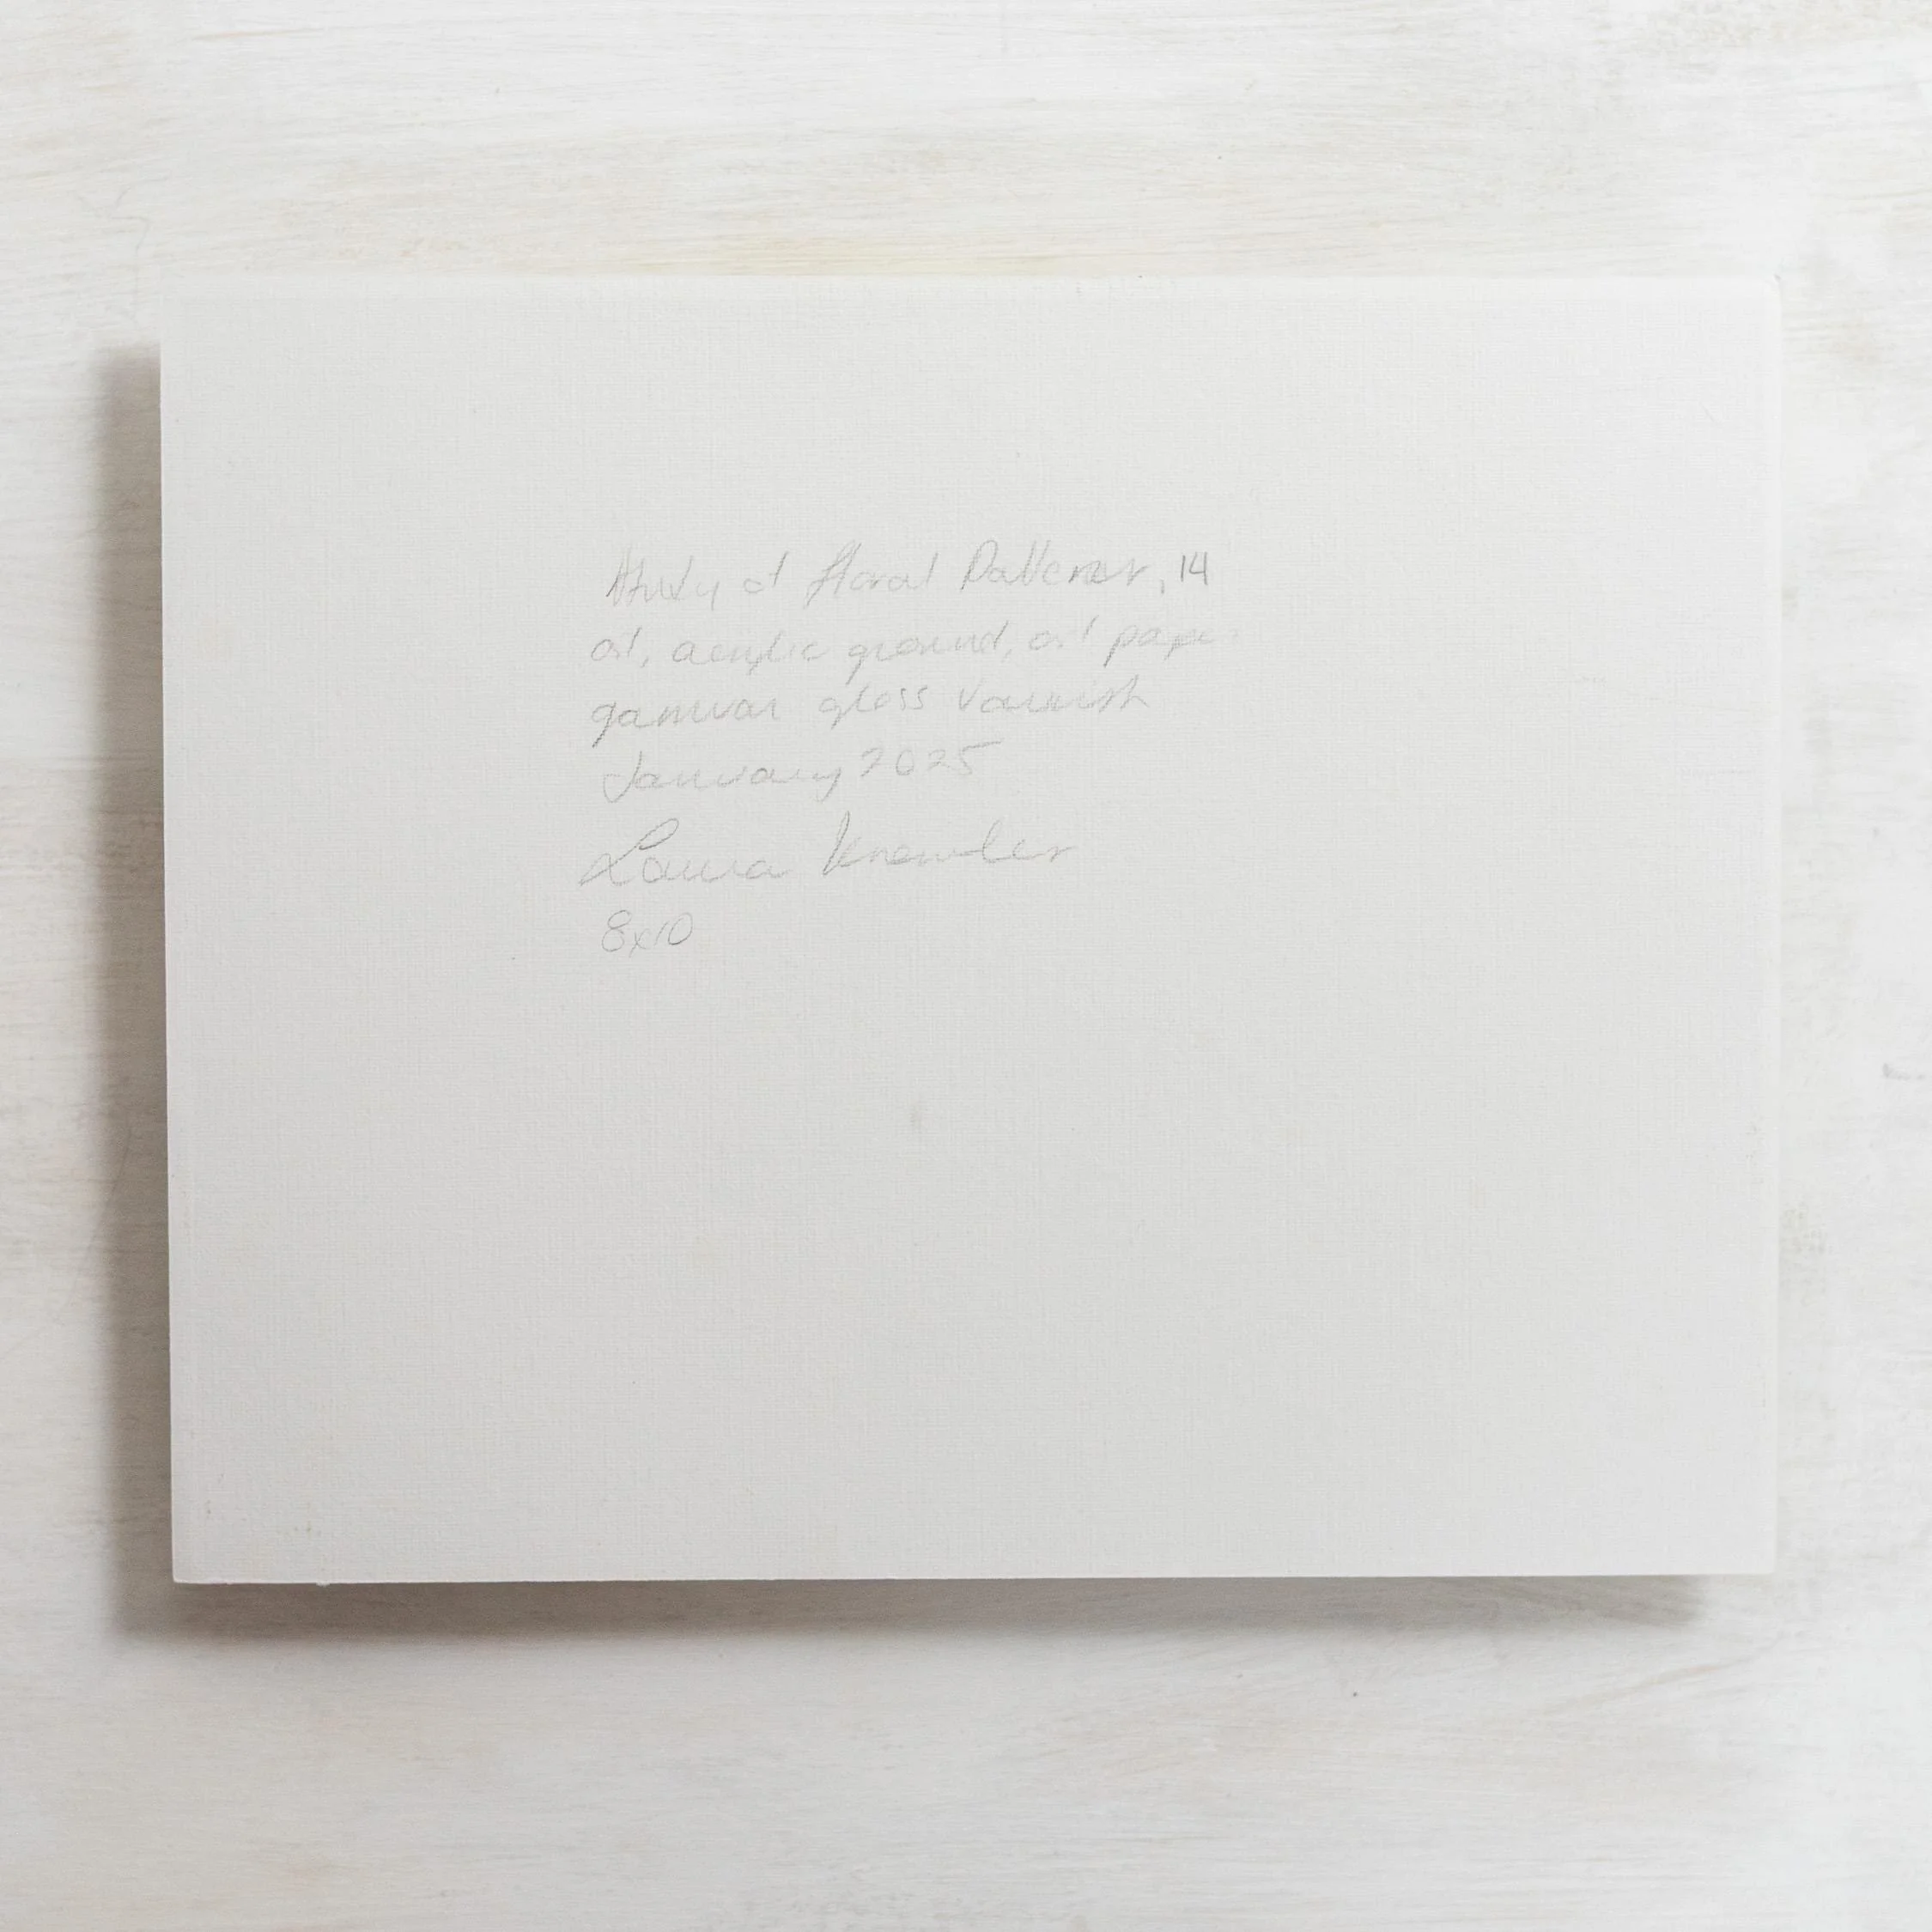 Study of Floral Patterns, 14
oil, acrylic ground, oil paper
gamvar gloss varnish
January 2025
Laura Knowler
8x10